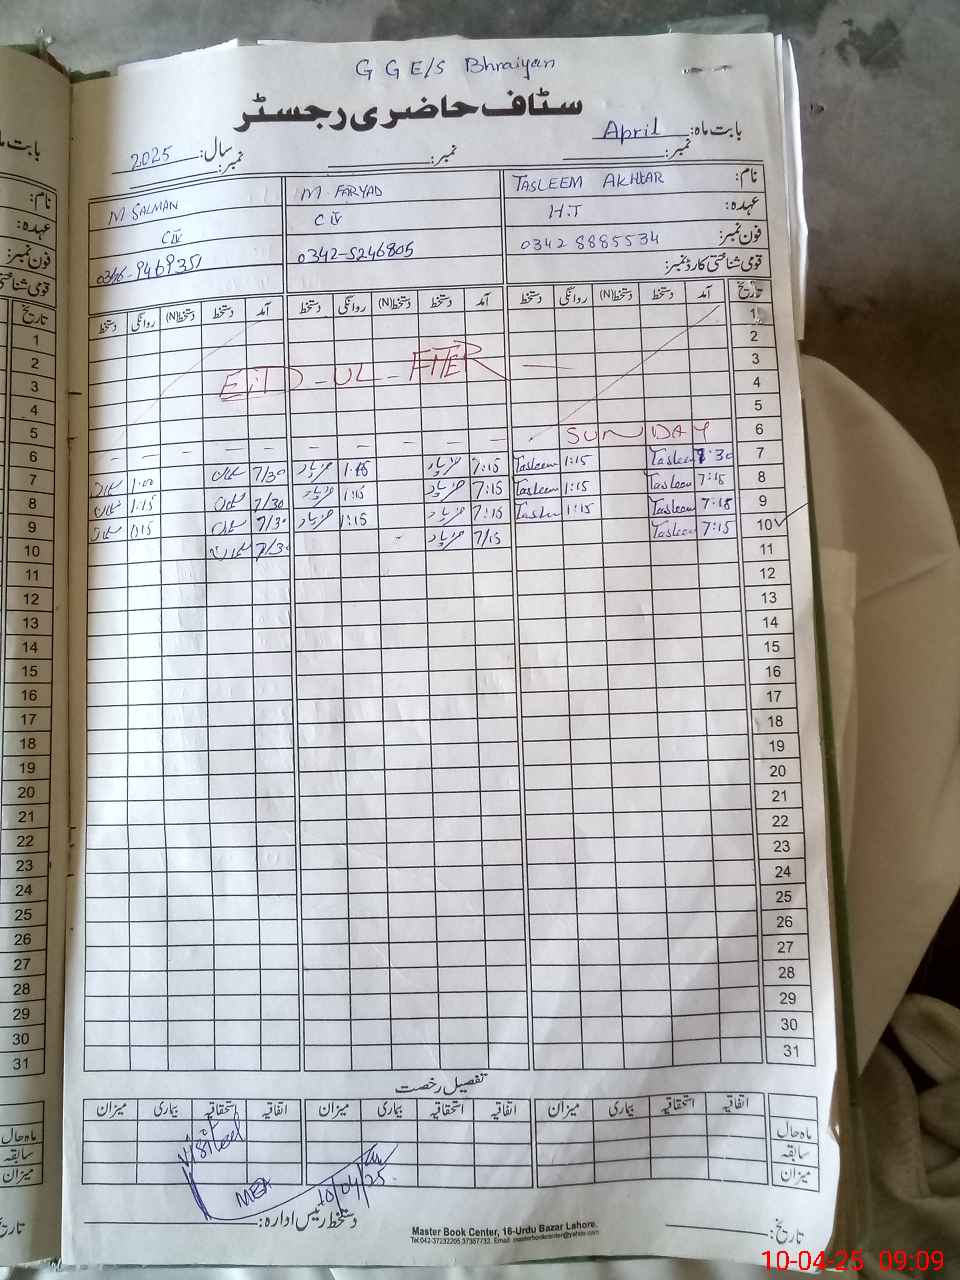 G G E/S Bhraiyan
سٹاف حاضری رجسٹر
بابت ماہ: April
سال: 2025
نمبر: نمبر: نمبر:
نام: TASLEEM AKHTAR M. FARYAD M SALMAN
عہدہ: H.T C IV C IV
فون نمبر: 0342 8885534 0342-5246805
قومی شناختی کارڈ نمبر:
تاریخ آمد دستخط دستخط(N) روانگی دستخط آمد دستخط دستخط(N) روانگی دستخط آمد دستخط دستخط(N) روانگی دستخط
1
2
3 EID - UL - FITER
4
5
6 SUNDAY
7 7:30 Tasleem 1:15 Tasleem 7:15 فریاد 1:15 فریاد 7/30 سلمان 1:00 سلمان
8 7:15 Tasleem 1:15 Tasleem 7:15 فریاد 1:15 فریاد 7/30 سلمان 1:15 سلمان
9 7:15 Tasleem 1:15 Tasleem 7:15 فریاد 1:15 فریاد 7/30 سلمان 1:15 سلمان
10 7:15 Tasleem 7/15 فریاد 7/30 سلمان
11
12
13
14
15
16
17
18
19
20
21
22
23
24
25
26
27
28
29
30
31
تفصیل رخصت
اتفاقیہ استحقاقیہ بیماری میزان اتفاقیہ استحقاقیہ بیماری میزان اتفاقیہ استحقاقیہ بیماری میزان
ماہ حال
سابقہ
میزان
Visited
MEA 10/04/25
تاریخ: دستخط رئیس ادارہ:
Master Book Center, 16-Urdu Bazar Lahore.
10-04-25 09:09